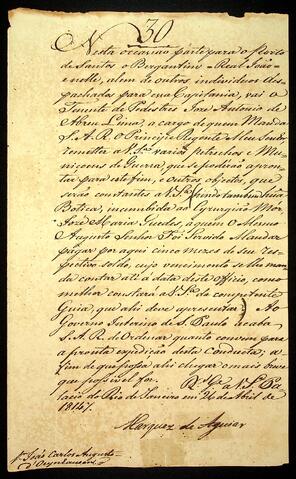 30
Nesta occasião parte para o Porto
de Santos o Bergantim = Real João =
e nelle, alem de outros individuos des-
pachados para essa Capitania, vai o
Tenente de Pedestres José Antonio de
Abreu Lima, a cargo de quem Manda
S. A. R. o Principe Regente Meu Senhor
remetter a V. Sª varios petrechos e Mu-
niçoens de Guerra, que se poderão apron-
tar para este fim, e outros objectos, que
serão constantes a V. Sª, sendo tambem huma
Botica, incumbida ao Cyrurgião Mor,
José Maria Guedes, a quem o Mesmo
Augusto Senhor Foi Servido Mandar
pagar por aqui cinco mezes do seu res-
pectivo soldo, cujo vencimento se lhe man-
da contar até á data deste Officio, como
melhor constará a V. Sª da competente
Guia, que ahi deve apresentar. Ao
Governo Interino de S. Paulo acaba
S. A. R. de Ordenar quanto convem para
a prompta expedição desta Conducta, a
fim de que possa ahi chegar o mais breve
que possivel for. Ds. Ge. a V. Sª Pa-
lacio do Rio de Janeiro em 26 de Abril de
1814.
Marquez de Aguiar
Sr. João Carlos Augusto
d'Oeynhausen.